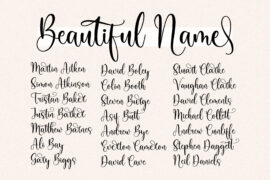 Beautiful Names
Martin Aitken
Simon Atkinson
Tristan Baker
Justin Barker
Matthew Barnes
Ali Bay
Gary Biggs
David Boley
Colin Booth
Steven Budge
Asif Butt
Andrew Bye
Everton Cameron
David Cave
Stuart Clarke
Vaughan Clarke
David Clements
Michael Collett
Andrew Cunliffe
Stephen Daggett
Neil Daniels